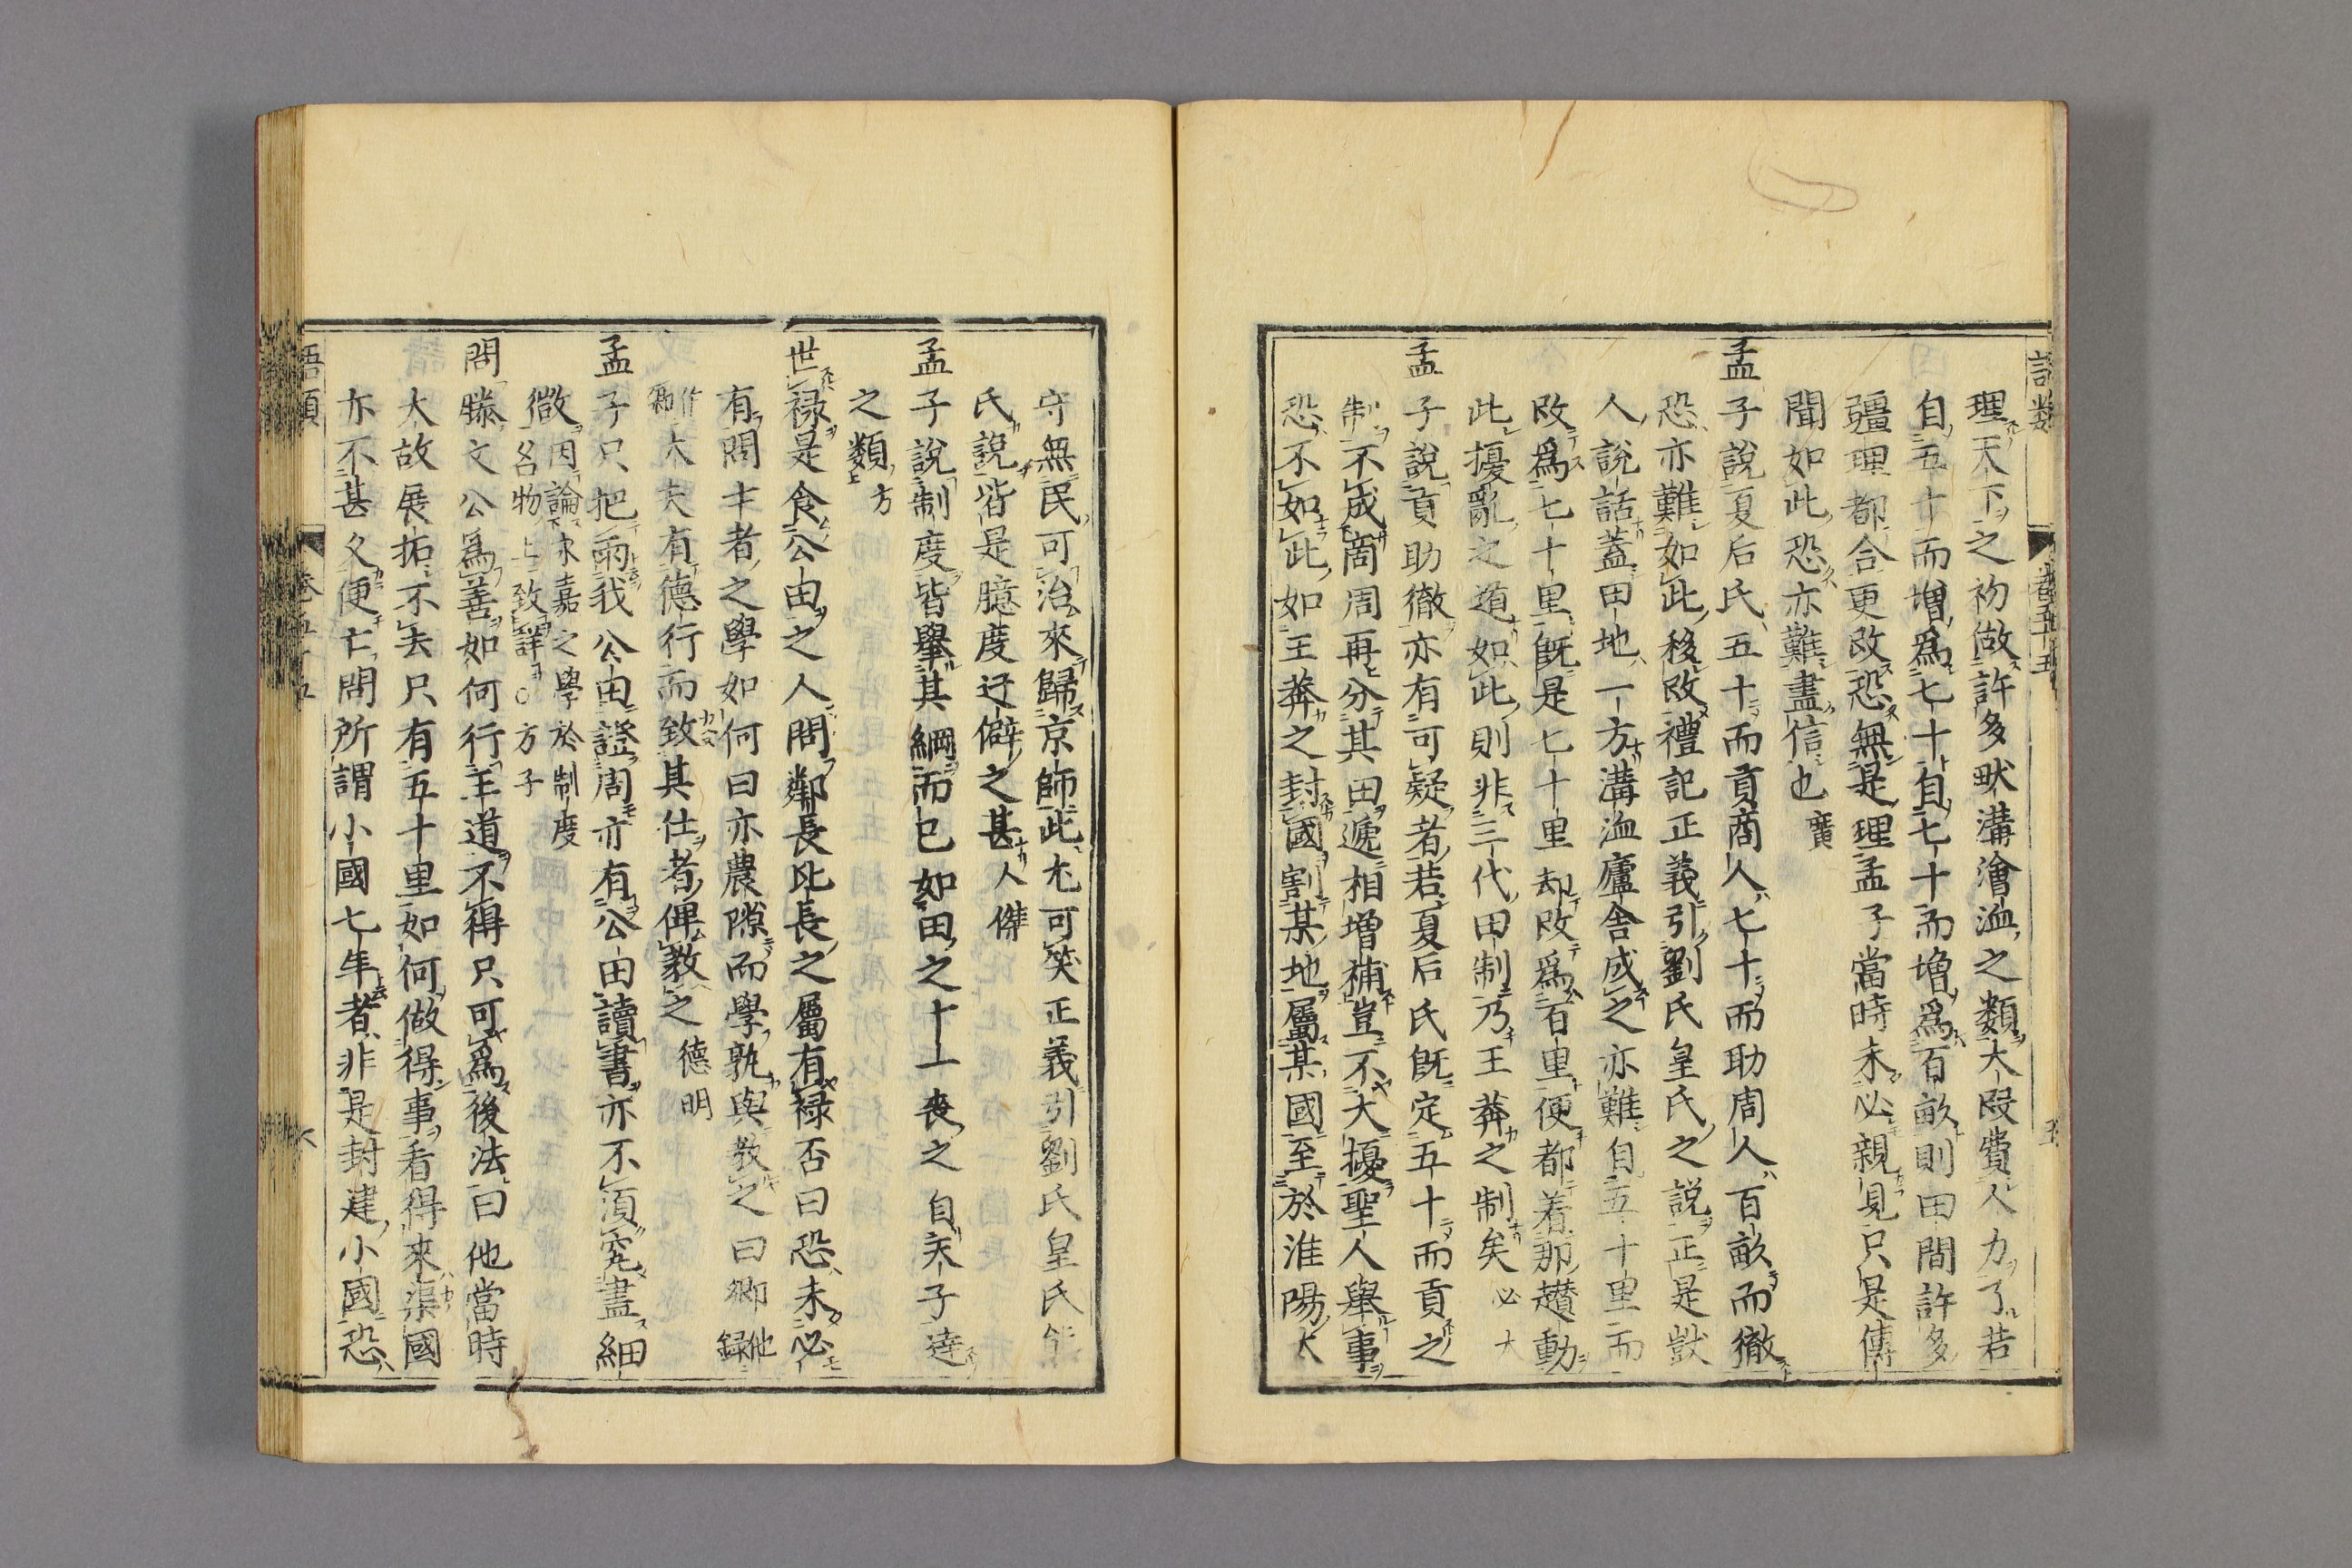 語類 卷五十五 五
理天下之初做許多畎溝澮洫之類大段費人力了若
自五十而增爲七十自七十而增爲百畝則田間許多
疆理都合更改恐無是理孟子當時未必親見只是傳
聞如此恐亦難盡信也 廣
孟子說夏后氏五十而貢商人七十而助周人百畝而徹
恐亦難如此移改禮記正義引劉氏皇氏之說正是獃
人說話蓋田地一方溝洫廬舍成之亦難自五十里而
改爲七十里既是七十里却改爲百里便都着那趲動
此擾亂之道如此則非三代田制乃王莽之制矣 必大
孟子說貢助徹亦有可疑者若夏后氏既定五十而貢之
制不成商周再分其田遞相增補豈不大擾聖人舉事
恐不如此如王莽之封國割某地屬某國至於淮陽太
守無民可治來歸京師此尤可笑正義引劉氏皇氏熊
氏說皆是臆度迂僻之甚 人傑
孟子說制度皆舉其綱而已如田之十一喪之自天子達
之類 方
世祿是食公田之人問鄰長比長之屬有祿否曰恐未必
有問士者之學如何曰亦農隙而學孰與教之曰鄉 他錄
作卿 大夫有德行而致其仕者俾教之 德明
孟子只把雨我公田證周亦有公田讀書亦不須究盡細
微 因論永嘉之學於制度名物上致詳○方子
問滕文公爲善如何行王道不得只可爲後法曰他當時
大故展拓不去只有五十里如何做得事看得來渠國
亦不甚久便亡問所謂小國七年者非是封建小國恐
語類 卷五十五 六